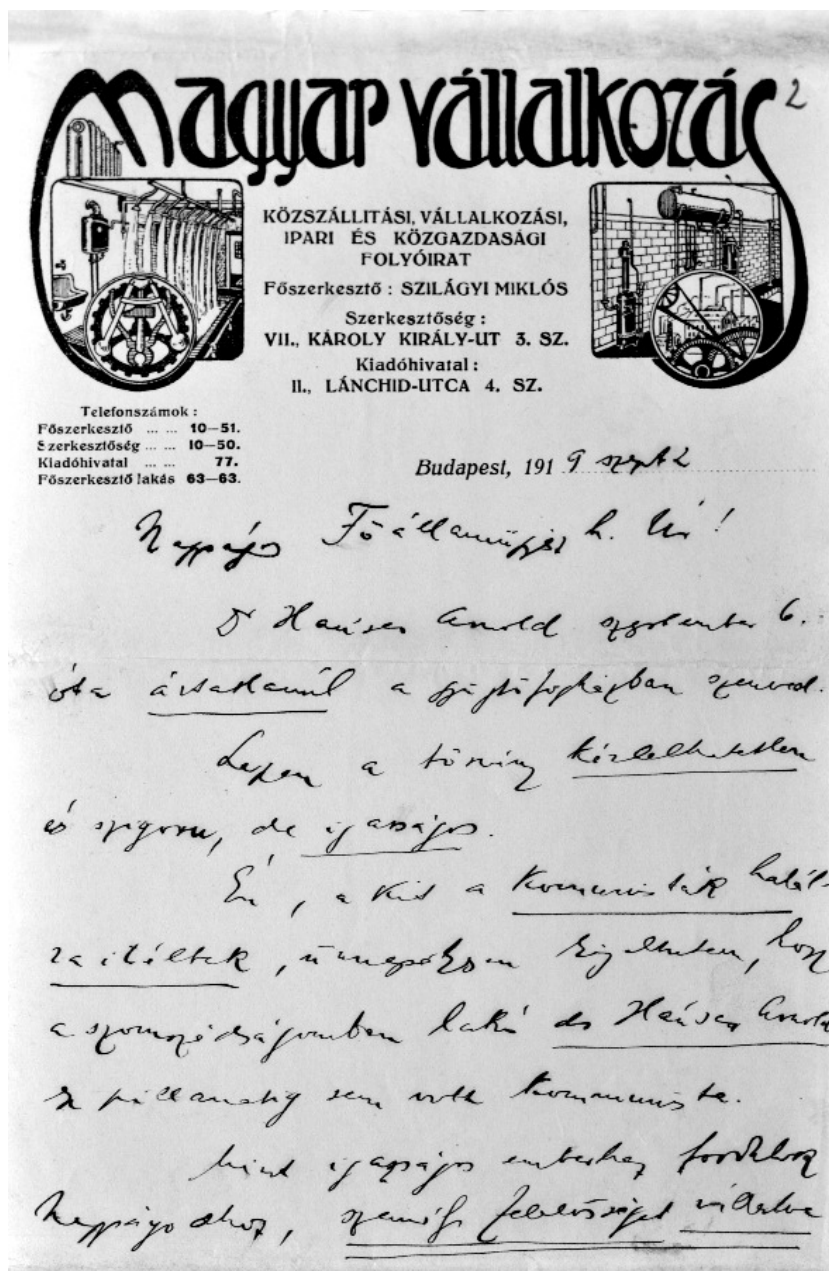 Magyar Vállalkozás
2
KÖZSZÁLLITÁSI, VÁLLALKOZÁSI,
IPARI ÉS KÖZGAZDASÁGI
FOLYÓIRAT
Főszerkesztő : SZILÁGYI MIKLÓS
Szerkesztőség :
VII., KÁROLY KIRÁLY-UT 3. SZ.
Kiadóhivatal :
II., LÁNCHID-UTCA 4. SZ.
Telefonszámok :
Főszerkesztő ... ... 10—51.
Szerkesztőség ... ... 10—50.
Kiadóhivatal ... ... 77.
Főszerkesztő lakás 63—63.
Budapest, 1919 szept 2
Nagyságos Főállamügyész h. Úr!
Dr Hauser Arnold szeptember 6.
óta ártatlanúl a gyüjtőfogházban szenved.
Legyen a törvény kérlelhetetlen
és szigoru, de igazságos.
Én, a kit a kommunisták halál-
ra itéltek, ünnepélyesen, hogy
a szomszédságomban lakó dr Hauser Arnold
egy pillanatig sem volt kommunista.
Mint igazságos emberhez fordulok
Nagyságodhoz, személyi felelősséget vállalva